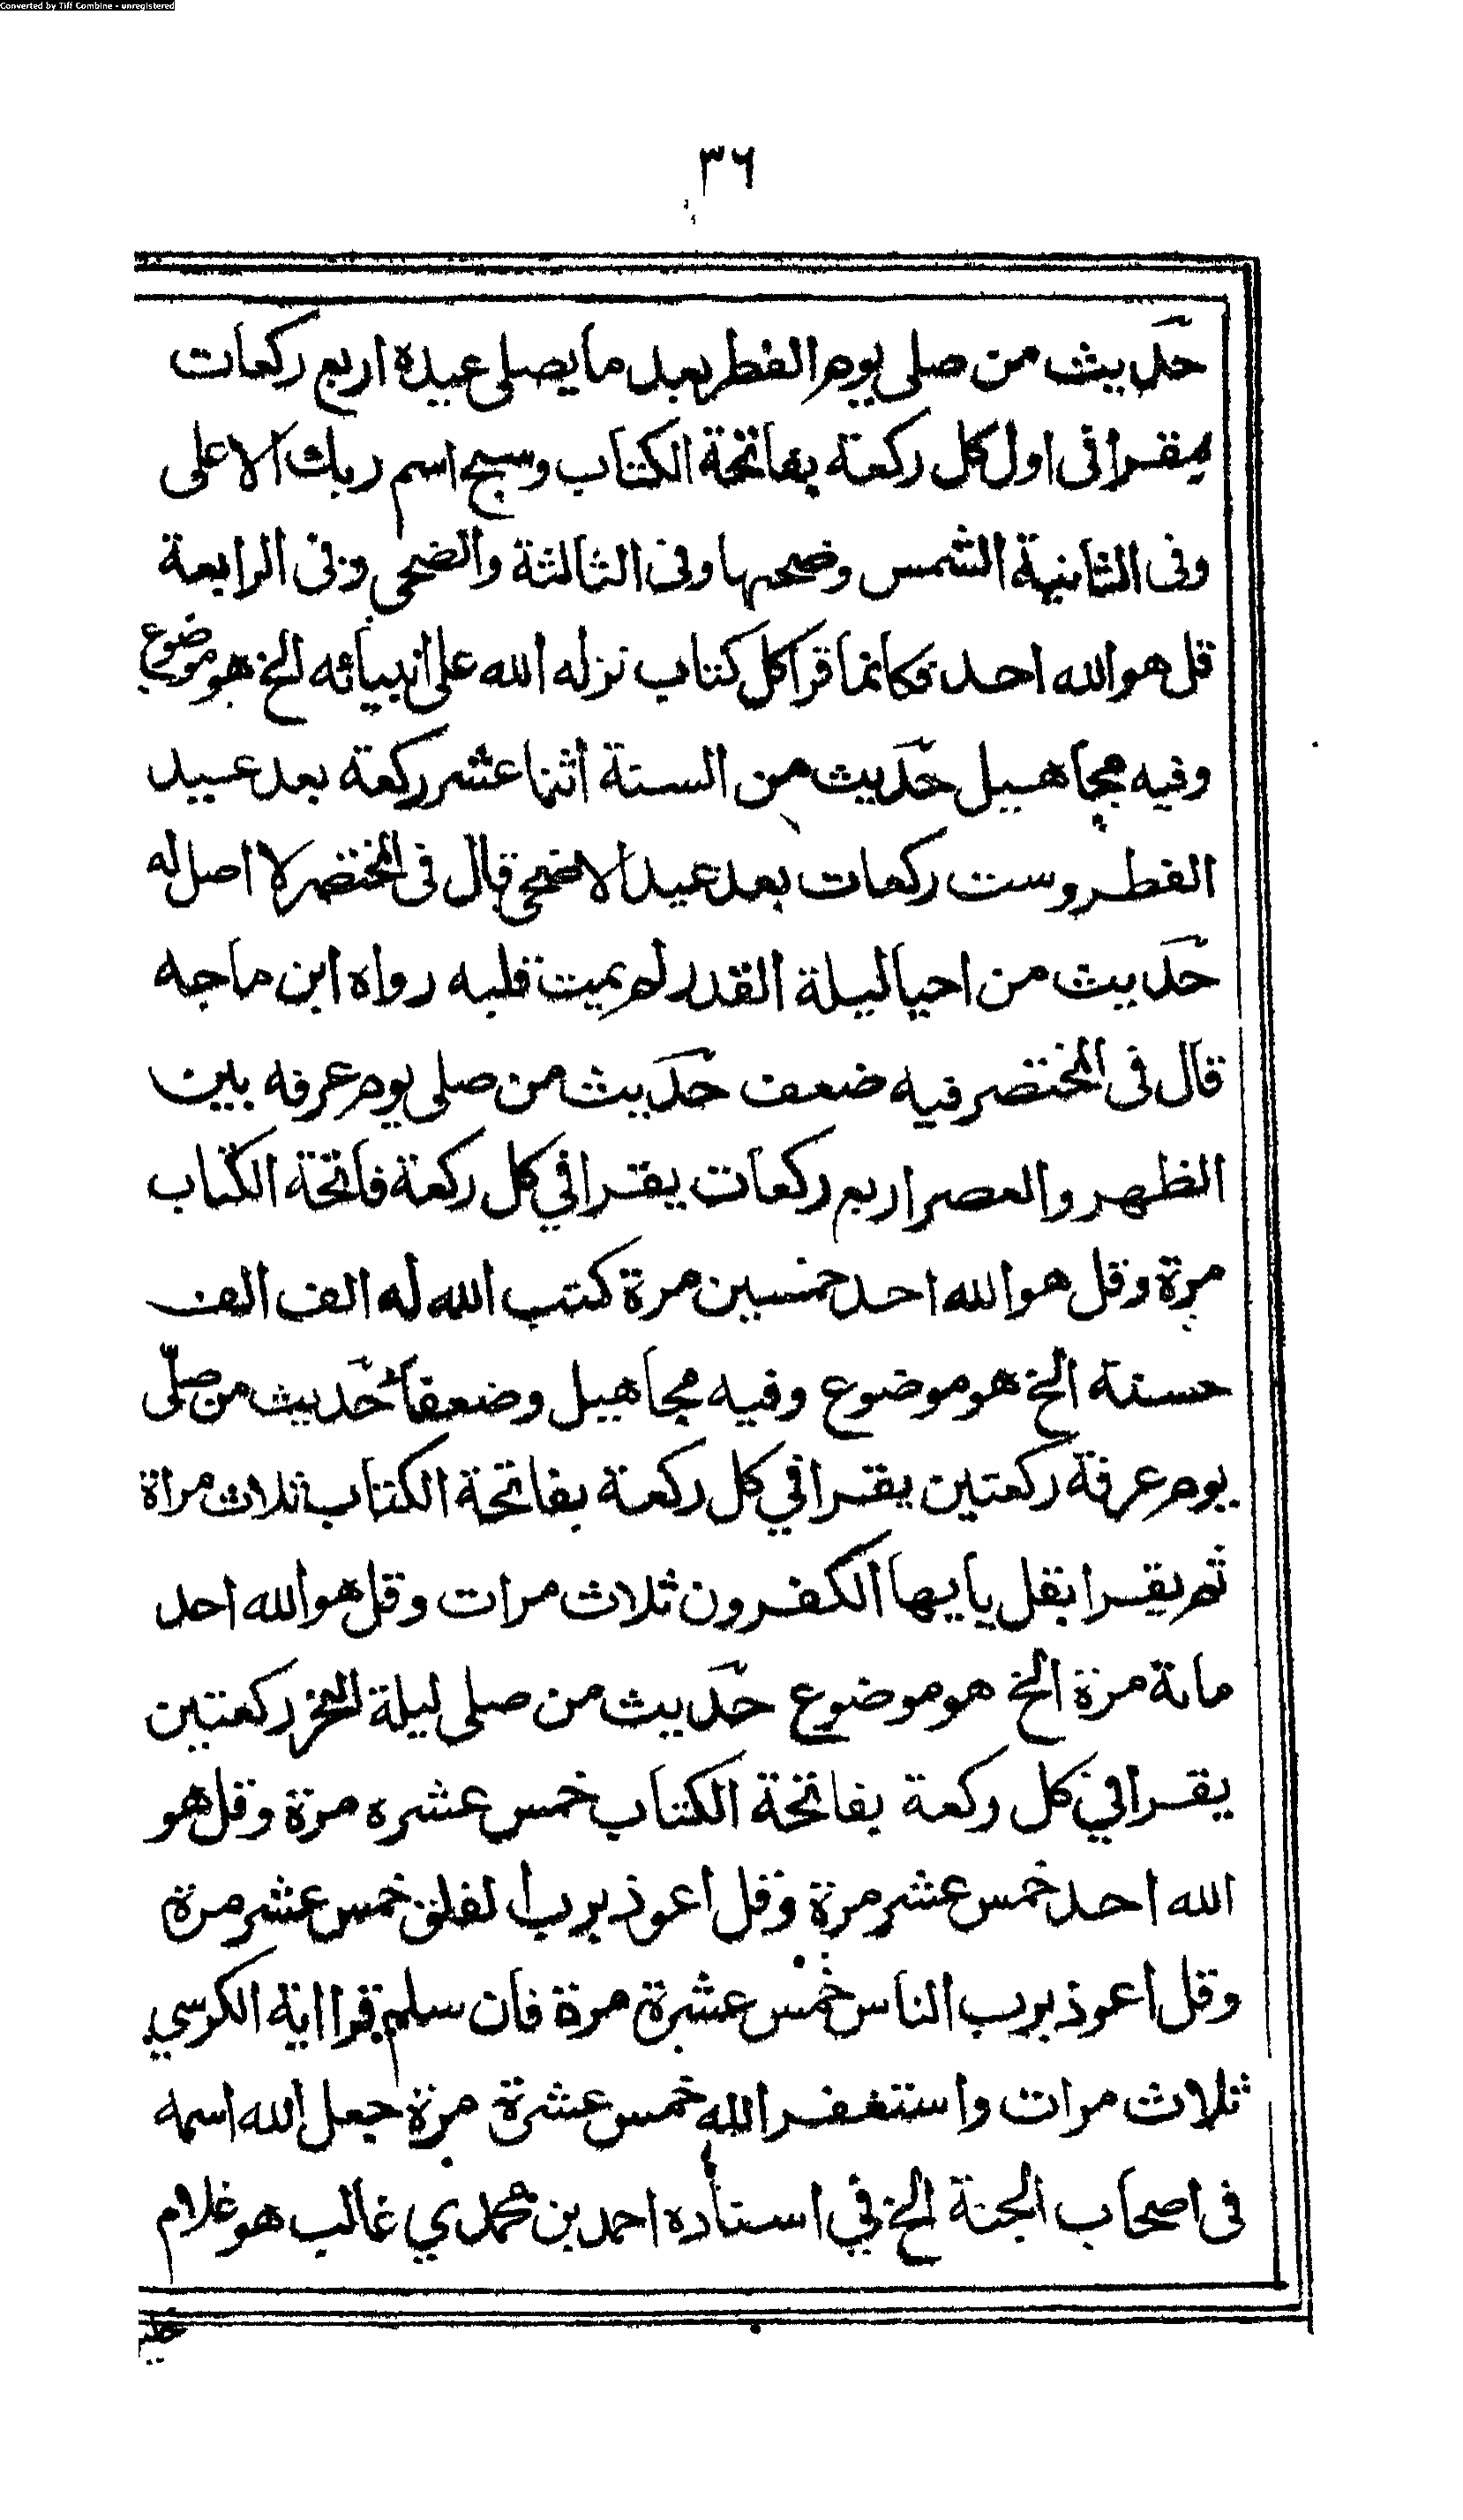 Converted by Tiff Combine - unregistered
٣٦
حديث من صلى يوم الفطر بعد ما يصلى عيده اربع ركعات
يقرا فى اول كل ركعة بفاتحة الكتاب وسبح اسم ربك الاعلى
وفى الثانية الشمس وضحها وفى الثالثة والضحى وفى الرابعة
قل هو الله احد فكانما قرا كل كتاب نزله الله على انبيائه الخ هو موضوع
وفيه مجاهيل حديث من السنة اثنا عشر ركعة بعد عيد
الفطر وست ركعات بعد عيد الاضحى قال فى المختصر لا اصل له
حديث من احيا ليلة القدر لم يمت قلبه رواه ابن ماجه
قال فى المختصر فيه ضعف حديث من صلى يوم عرفه بين
الظهر والعصر اربع ركعات يقرا في كل ركعة فاتحة الكتاب
مرة وقل هو الله احد خمسين مرة كتب الله له الف الف
حسنة الخ هو موضوع وفيه مجاهيل وضعفاء حديث من صلّى
يوم عرفة ركعتين يقرا في كل ركعة بفاتحة الكتاب ثلاث مراة
ثم يقرا بقل يايها الكفرون ثلاث مرات وقل هو الله احد
مائة مرة الخ هو موضوع حديث من صلى ليلة النحر ركعتين
يقرا في كل ركعة بفاتحة الكتاب خمس عشره مرة وقل هو
الله احد خمس عشر مرة وقل اعوذ برب الفلق خمس عشر مرة
وقل اعوذ برب الناس خمس عشرة مرة فان سلم قرا اية الكرسي
ثلاث مرات واستغفر الله خمس عشرة مرة جعل الله اسمه
فى اصحاب الجنة الخ في اسناده احمد بن محمد بن غالب هو غلام